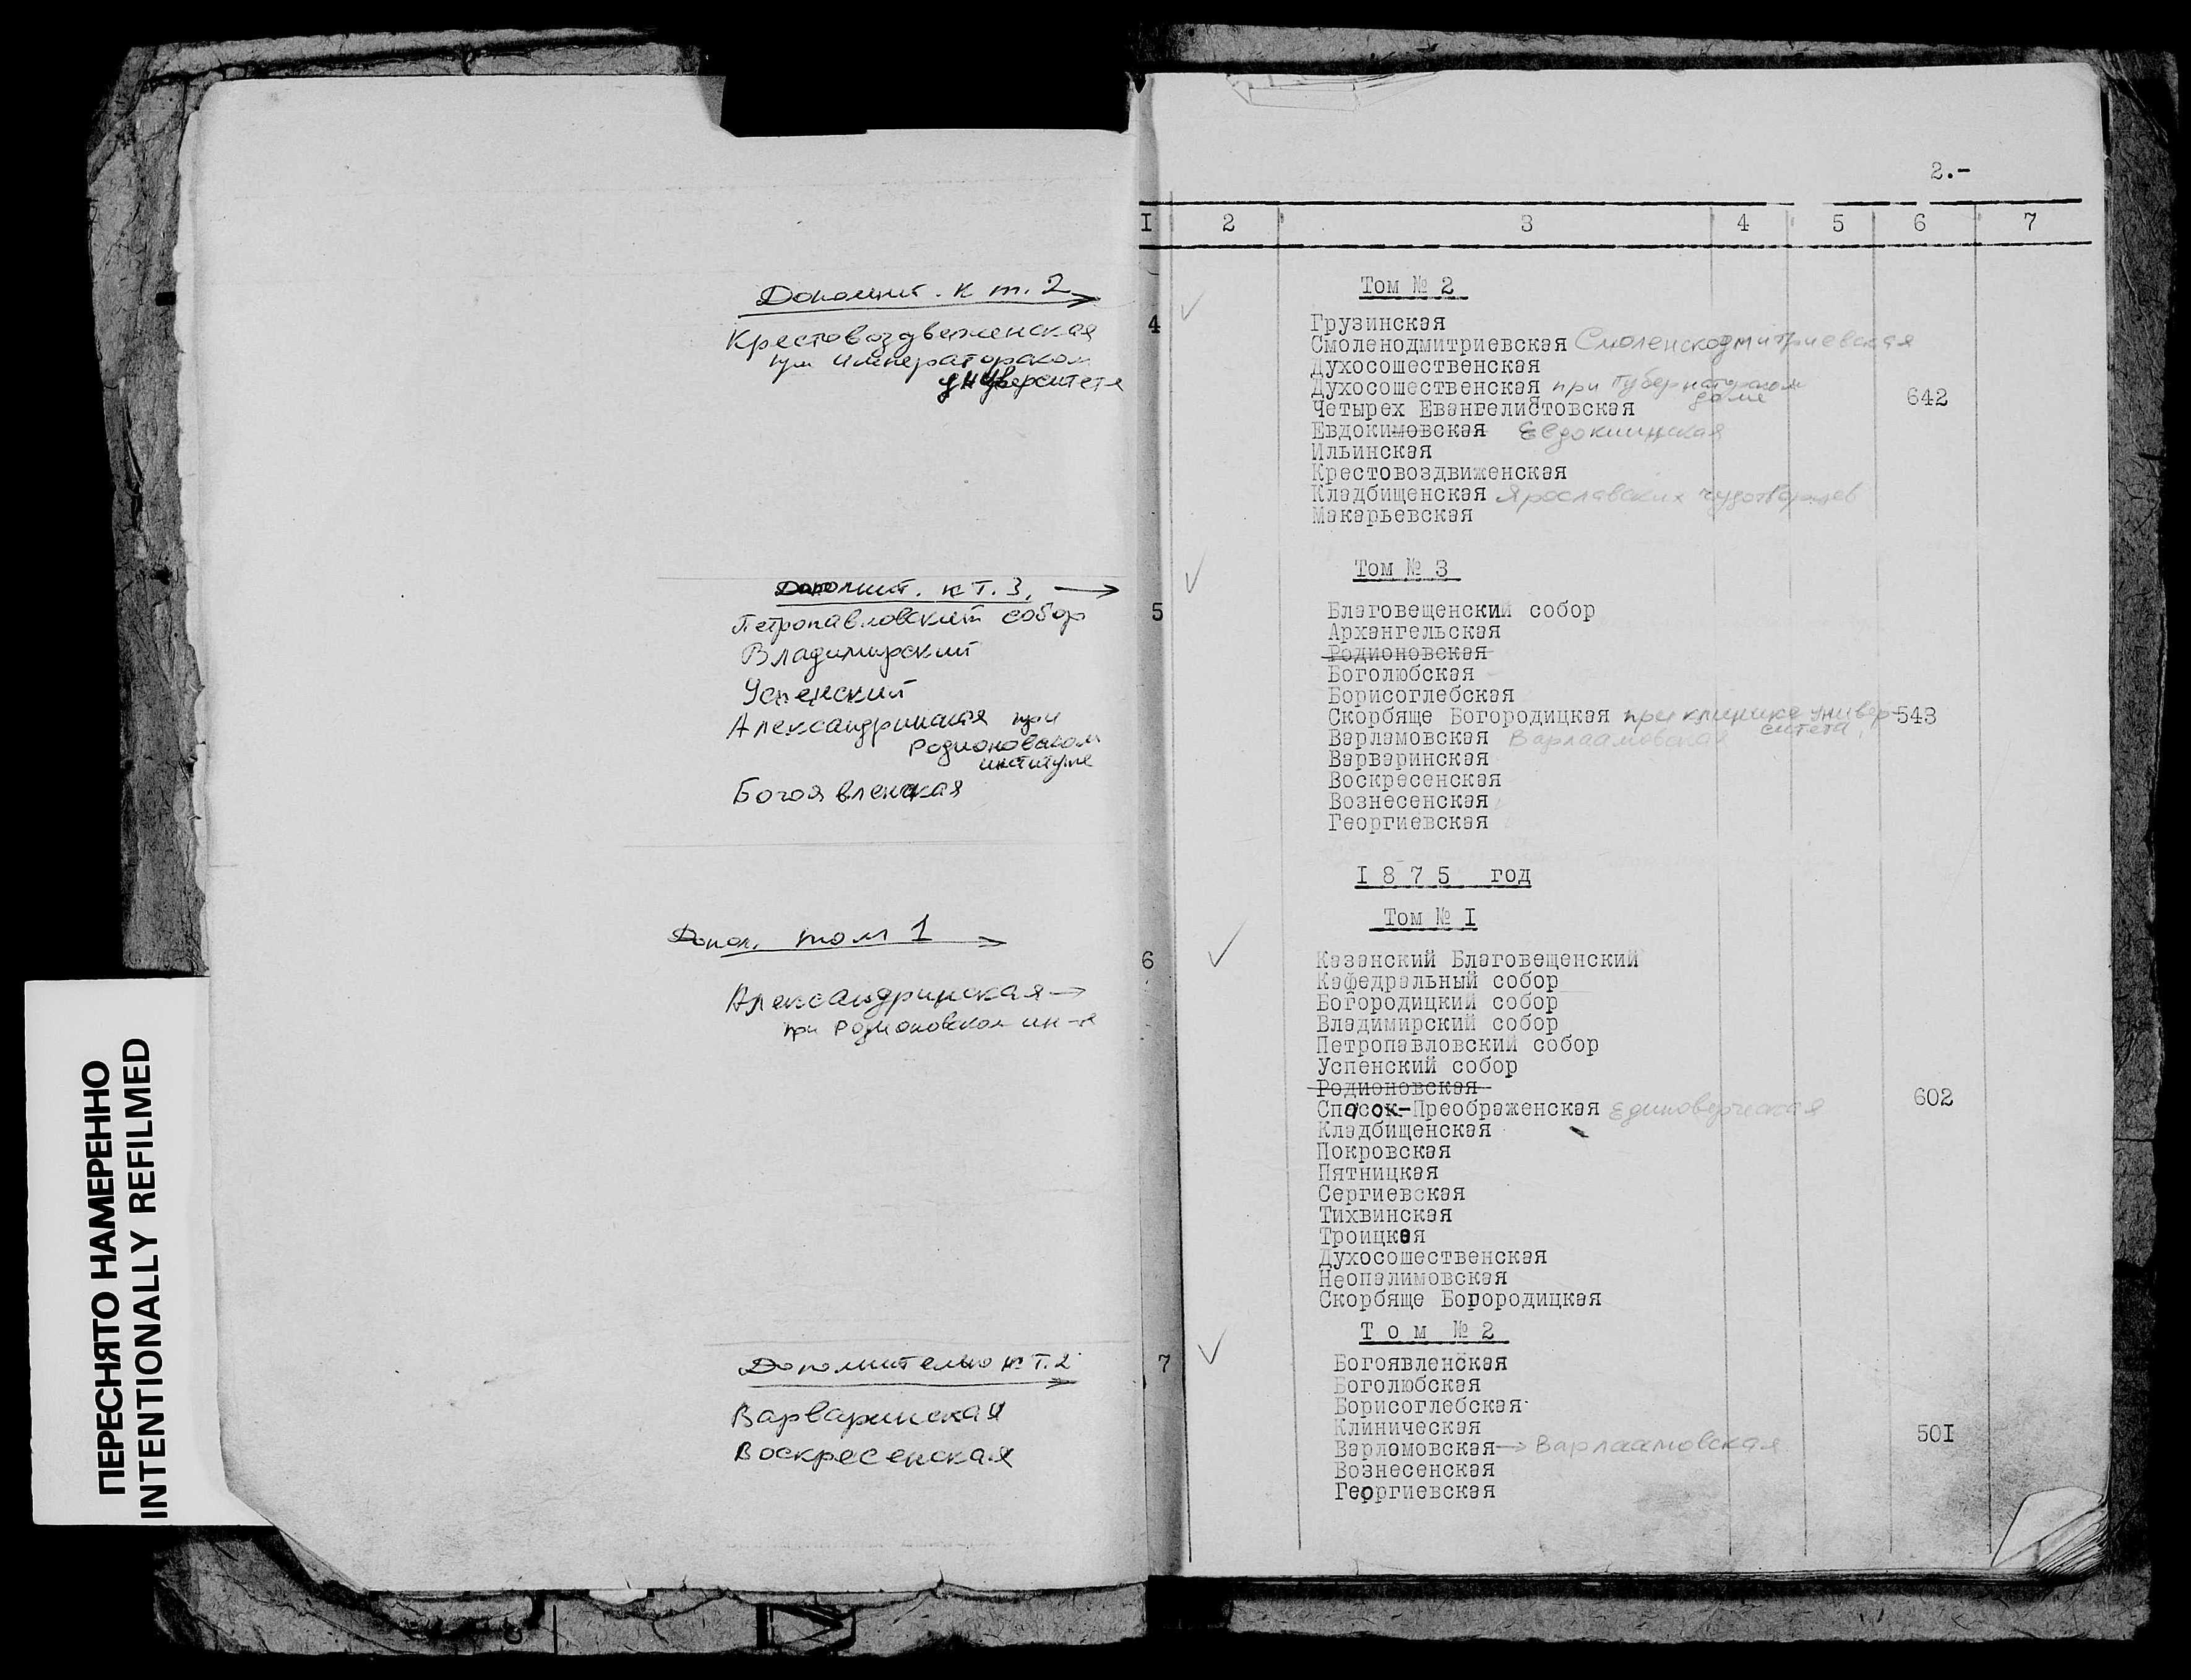 Дополнит. к т. 2
Крестовоздвиженская
при императорском
университете
Дополнит. к т. 3.
Петропавловский собор
Владимирский
Успенский
Александринская при
Родионовском
институте
Богоявленская
Допол. том 1
Александринская
при Родионовском ин-те
Дополнительно к т. 2
Варваринская
Воскресенская
ПЕРЕСНЯТО НАМЕРЕННО
INTENTIONALLY REFILMED
2.-
I 2 3 4 5 6 7
Том № 2
4 Грузинская
Смоленодмитриевская Смоленскодмитриевская
Духосошественская
Духосошественская при Губернаторском
доме
Четырех Евангелистовская 642
Евдокимовская Евдокиинская
Ильинская
Крестовоздвиженская
Кладбищенская Ярославских чудотворцев
Макарьевская
Том № 3
5 Благовещенский собор
Архангельская
Родионовская
Боголюбская
Борисоглебская
Скорбяще Богородицкая при клинике универ- 543
ситета
Варламовская Варлаамовская
Варваринская
Воскресенская
Вознесенская
Георгиевская
I 8 7 5 год
Том № I
6 Казанский Благовещенский
Кафедральный собор
Богородицкий собор
Владимирский собор
Петропавловский собор
Успенский собор
Родионовская
Спасок-Преображенская Единоверческая 602
Кладбищенская
Покровская
Пятницкая
Сергиевская
Тихвинская
Троицкая
Духосошественская
Неопалимовская
Скорбяще Богородицкая
Т о м № 2
7 Богоявленская
Боголюбская
Борисоглебская
Клиническая
Варламовская Варлаамовская 50I
Вознесенская
Георгиевская